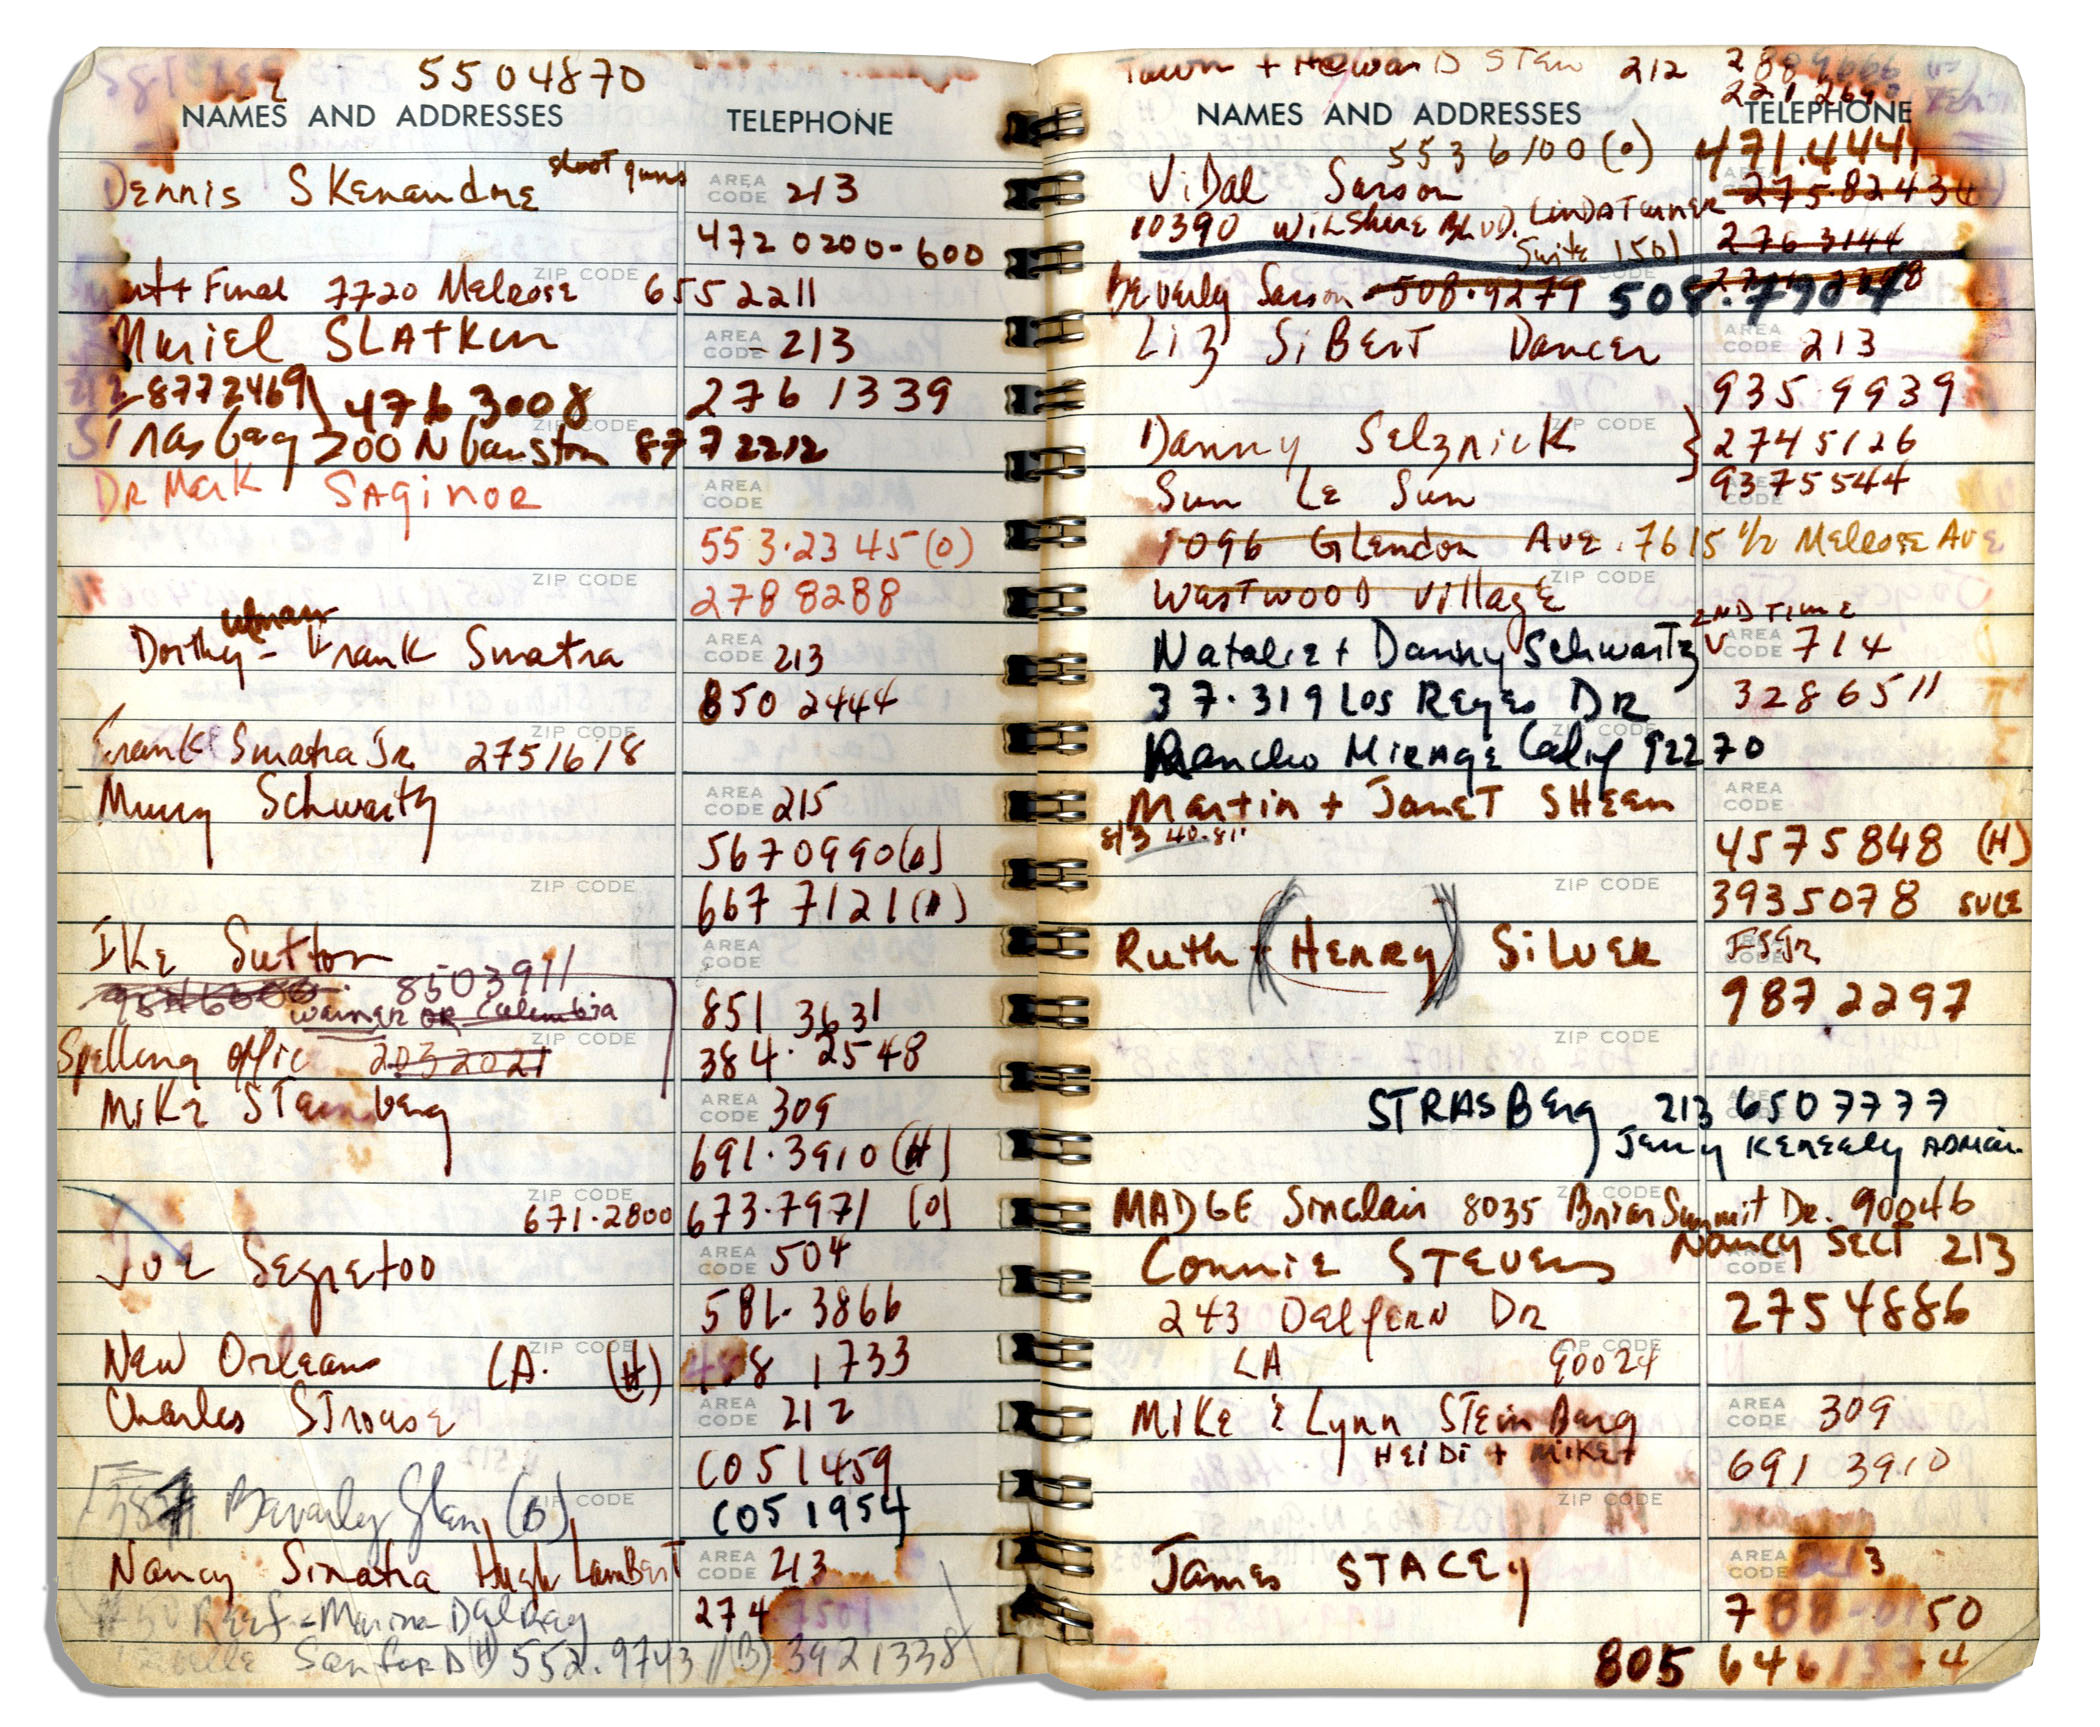 5504870
NAMES AND ADDRESSES TELEPHONE
Dennis SKenandre shoot guns AREA CODE 213
472 0200-600
ZIP CODE
+ Final 7720 Melrose 655 2211
Muriel SLATKin AREA CODE -213
212-8772469 476 3008 276 1339
ZIP CODE
200 N 877 2212
DR Mark SAginoR AREA CODE
553.2345 (0)
ZIP CODE 278 8288
Dorthy - Frank Sinatra AREA CODE 213
850 2444
ZIP CODE
Frank Sinatra JR. 2751618
Murry Schwartz AREA CODE 215
567 0990 (0)
ZIP CODE 667 7121 (H)
IKE Sutton AREA CODE
8503911
WARNER OR Columbia 851 3631
ZIP CODE
Spelling office 203 2021 384.2548
MiKE STEinberg AREA CODE 309
691.3910 (H)
ZIP CODE
671.2800 673.7971 (0)
JOE Segretoo AREA CODE 504
581.3866
NEW Orleans LA. ZIP CODE (H) 8 1733
Charles STrouse AREA CODE 212
CO5 1459
Beverly Glen (O) ZIP CODE CO5 1954
Nancy Sinatra Hugh LamBerT AREA CODE 213
Reef - Marina DelRay 274
SanforD (H) 552.9743 (B) 392 1338
+ HowarD STein 212 288
221
NAMES AND ADDRESSES TELEPHONE
553 6100 (0) 471.4441
ViDal Sasson AREA CODE 275.82434
10390 WiLShire BLVD. LinDA Turner
Suite 1501 276 3144
Beverly Sasson 508.9279 508.7704
Liz SiBerT Dancer AREA CODE 213
935.9939
Danny SelznicK ZIP CODE } 2745126
Sun Le Sun AREA CODE 9375544
1096 Glendon Ave. 7615 1/2 Melrose Ave
WestwooD Village ZIP CODE
2ND TIME
Natalie + Danny Schwartz AREA CODE 714
37.319 Los Reyes DR 328 6511
ZIP CODE
Rancho Mirage Calif 92270
Martin + JaneT SHEEN AREA CODE
457 5848 (H)
ZIP CODE 393 5078
Ruth + (HENRy) SiLVER AREA CODE
987 2297
ZIP CODE
STRASBerg 213 650 7777
Jerry Kenealy
ZIP CODE
MADGE Sinclair 8035 Briar Summit Dr. 90046
Nancy SECT
Connie STEVENS AREA CODE 213
243 DelfeRN DR 275 4886
LA ZIP CODE 90024
MiKE & Lynn STEinBerg AREA CODE 309
HEiDi + MiKE 691 3910
ZIP CODE
James STACEy AREA CODE 213
7 50
805 646